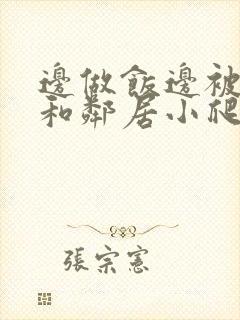 邊做飯邊被
和鄰居小爬
張宗憲